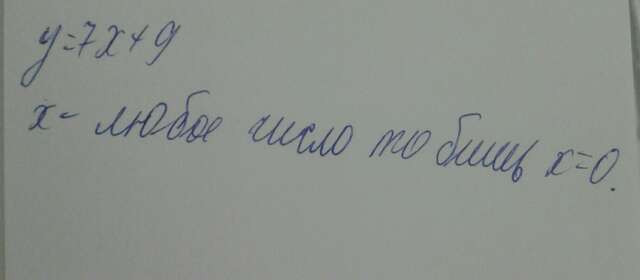 y=7x+9
x- любое число то бишь x=0.